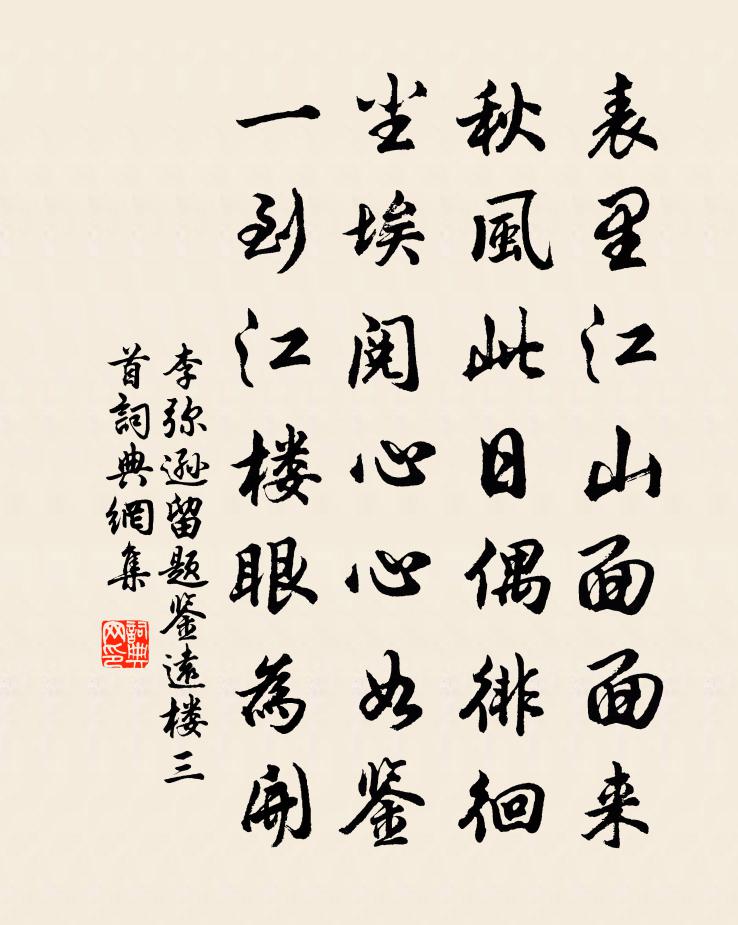 表里江山面面来
秋風此日偶徘徊
尘埃阅心心如鉴
一到江楼眼為開
李弥遜留题鉴遠楼三
首詞典網集
詞典网印